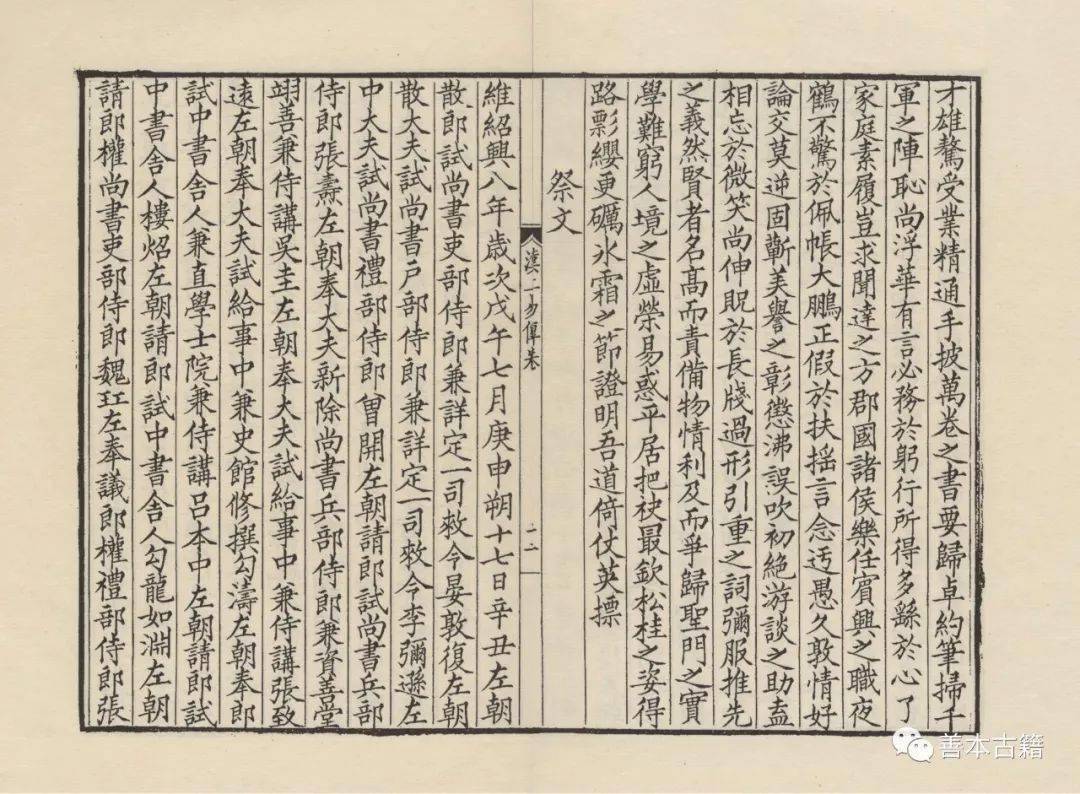 才雄鼇受業精通手披萬卷之書要歸卓約筆掃千
軍之陣恥尚浮華有言必務於躬行所得多繇於心了
家庭素履豈求聞達之方郡國諸侯樂任賓興之職夜
鶴不驚於佩帳大鵬正假於扶搖言念迃愚久敦情好
論交莫逆固蘄美譽之彰懲沸誤吹初絕游談之助盍
相忘於微笑尚伸貺於長牋過形引重之詞彌服推先
之義然賢者名高而責備物情利及而爭歸聖門之實
學難窮人境之虛榮易惑平居把袂最欽松桂之姿得
路影纓更礪氷霜之節證明吾道倚仗英摽
祭文
漢二勿傳卷
十二
維紹興八年歲次戊午七月庚申朔十七日辛丑左朝
散郎試尚書吏部侍郎兼詳定一司敕令晏敦復左朝
散大夫試尚書戶部侍郎兼詳定一司敕令李彌遜左
中大夫試尚書禮部侍郎曾開左朝請郎試尚書兵部
侍郎張燾左朝奉大夫新除尚書兵部侍郎兼資善堂
翊善兼侍講吳圭左朝奉大夫試給事中兼侍講張致
遠左朝奉大夫試給事中兼史館修撰勾濤左朝奉郎
試中書舍人兼直學士院兼侍講呂本中左朝請郎試
中書舍人樓炤左朝請郎試中書舍人勾龍如淵左朝
請郎權尚書吏部侍郎魏矼左奉議郎權禮部侍郎張
善本古籍